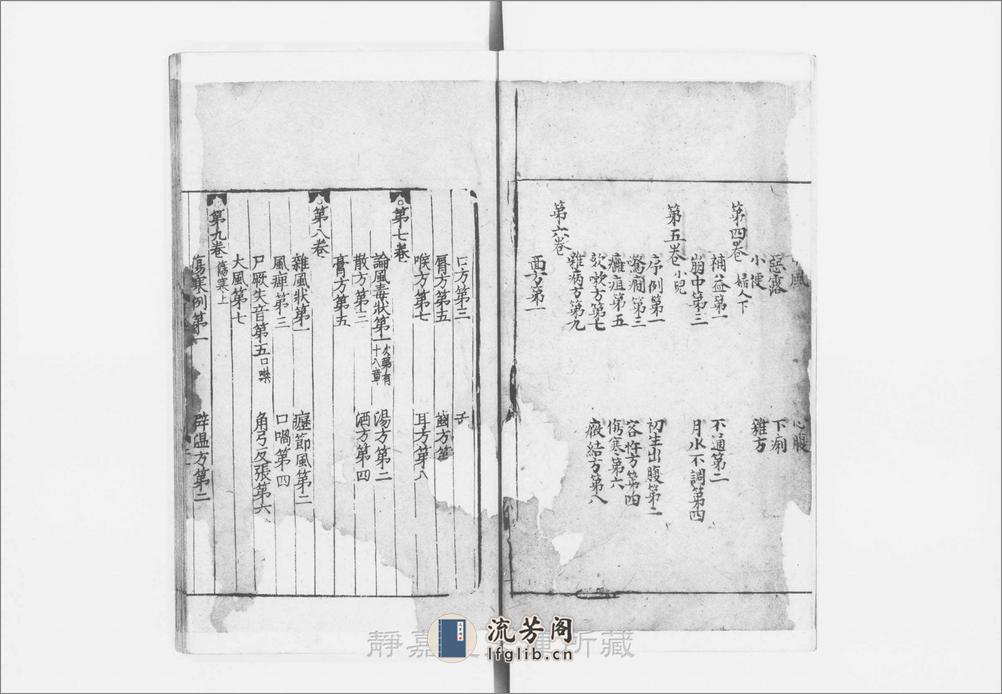 風 心腹
惡露 下痢
小便 雜方
第四卷 婦人下
補益第一 不通第二
崩中第三 月水不調第四
第五卷 小兒
序例第一 初生出腹第二
驚癇第三 客忤方第四
癰疽第五 傷寒第六
欬嗽方第七 癥結方第八
雜病方第九
第六卷
面方第一
口方第三 舌
脣方第五 齒方第
喉方第七 耳方第八
第七卷
論風毒狀第一 次第有十八章 湯方第二
散方第三 酒方第四
膏方第五
第八卷
雜風狀第一 癧節風第二
風痺第三 口喎第四
尸厥失音第五 口噤 角弓反張第六
大風第七
第九卷 傷寒上
傷寒例第一 辟溫方第二
流芳阁
lfglib.cn
靜嘉 所藏